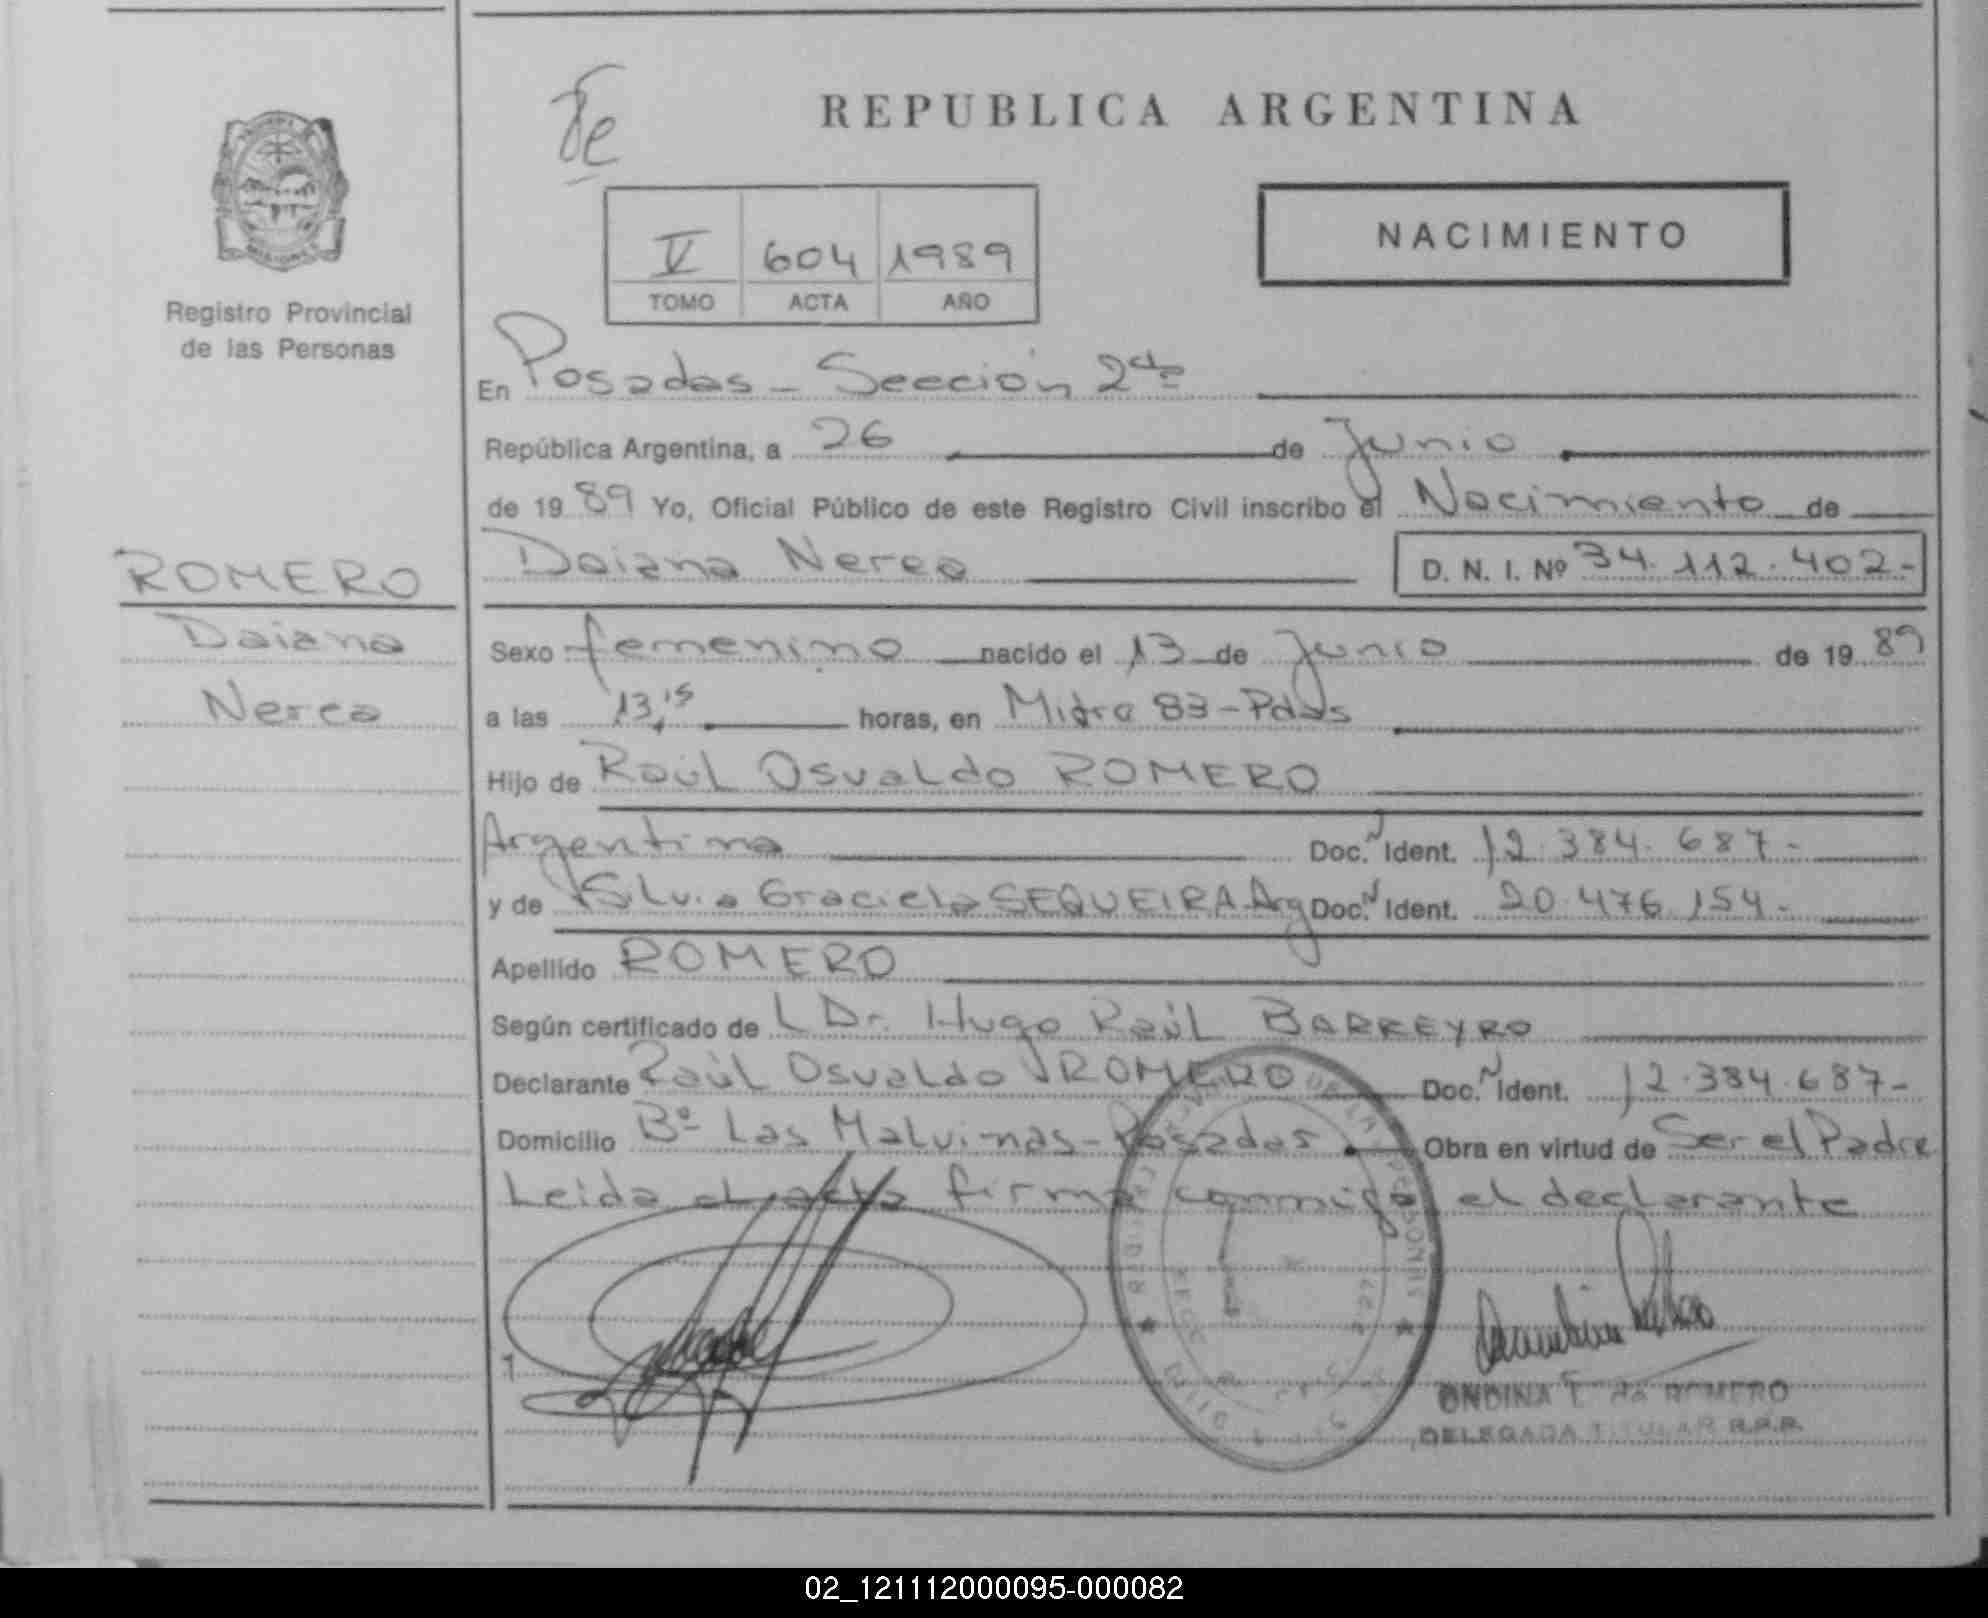 REPUBLICA ARGENTINA
NACIMIENTO
V 604 1989
TOMO ACTA AÑO
Registro Provincial
de las Personas
ROMERO
Daiana
Nerea
En Posadas - Sección 2da
República Argentina, a 26 de Junio
de 1989 Yo, Oficial Público de este Registro Civil inscribo el Nacimiento de
Daiana Nerea D. N. I. Nº 34.112.402-
Sexo femenino nacido el 13 de Junio de 1989
a las 13,15 horas, en Mitre 83-Pdas
Hijo de Raúl Osvaldo ROMERO
Argentina Doc. N Ident. 12.384.687-
y de Silvia Graciela SEQUEIRA Arg Doc. N Ident. 20.476.154-
Apellido ROMERO
Según certificado de L Dr. Hugo Raúl BARREYRO
Declarante Raúl Osvaldo ROMERO Doc. N Ident. 12.384.687-
Domicilio Bº Las Malvinas-Posadas Obra en virtud de Ser el Padre
Leida el acta firma conmigo el declarante
ONDINA de ROMERO
DELEGADA TITULAR R.P.P.
02_121112000095-000082